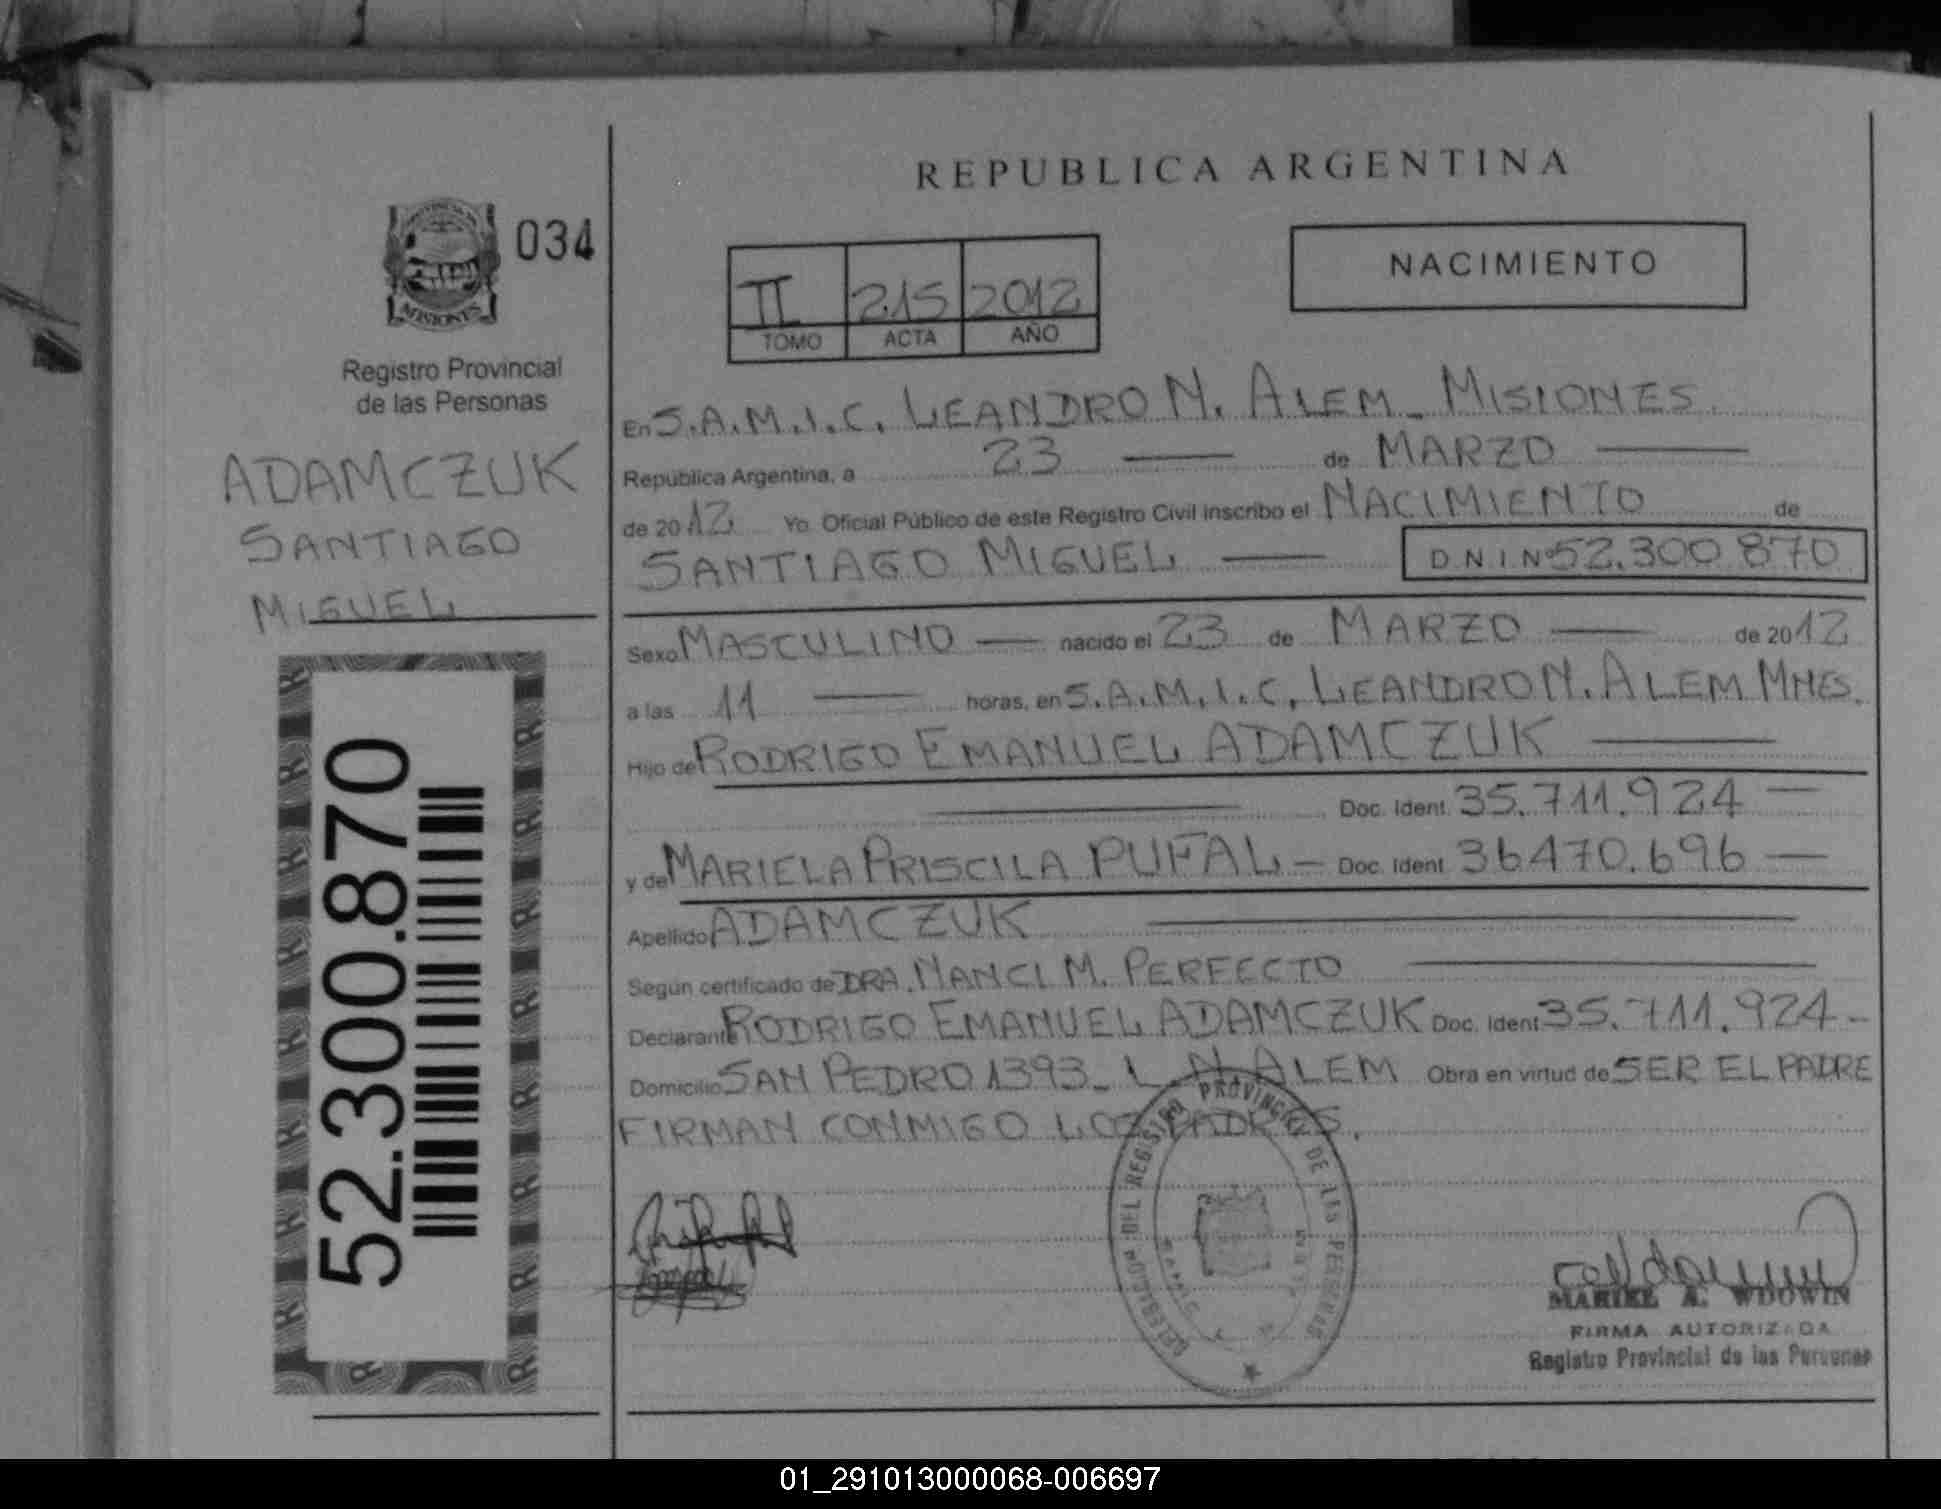 REPUBLICA ARGENTINA
034
NACIMIENTO
II 215 2012
TOMO ACTA AÑO
MISIONES
Registro Provincial
de las Personas
ADAMCZUK
SANTIAGO
MIGUEL
52.300.870
En S.A.M.I.C. LEANDRO N. ALEM - MISIONES.
República Argentina, a 23 — de MARZO —
de 2012 Yo Oficial Público de este Registro Civil inscribo el NACIMIENTO de
SANTIAGO MIGUEL — D.N.I. Nº 52.300.870
Sexo MASCULINO — nacido el 23 de MARZO — de 2012
a las 11 — horas, en S.A.M.I.C. LEANDRO N. ALEM MNES.
Hijo de RODRIGO EMANUEL ADAMCZUK —
— Doc. Ident. 35.711.924 —
y de MARIELA PRISCILA PUFAL — Doc. Ident. 36470.696 —
Apellido ADAMCZUK —
Según certificado de DRA. NANCI M. PERFECTO —
Declarante RODRIGO EMANUEL ADAMCZUK Doc. Ident 35.711.924 -
Domicilio SAN PEDRO 1393 - L. N. ALEM Obra en virtud de SER EL PADRE
FIRMAN CONMIGO LOS PADRES.
DEL REGISTRO PROVINCIAL DE LAS PERSONAS
A. WDOWIN
FIRMA AUTORIZADA
Registro Provincial de las Personas
01_291013000068-006697